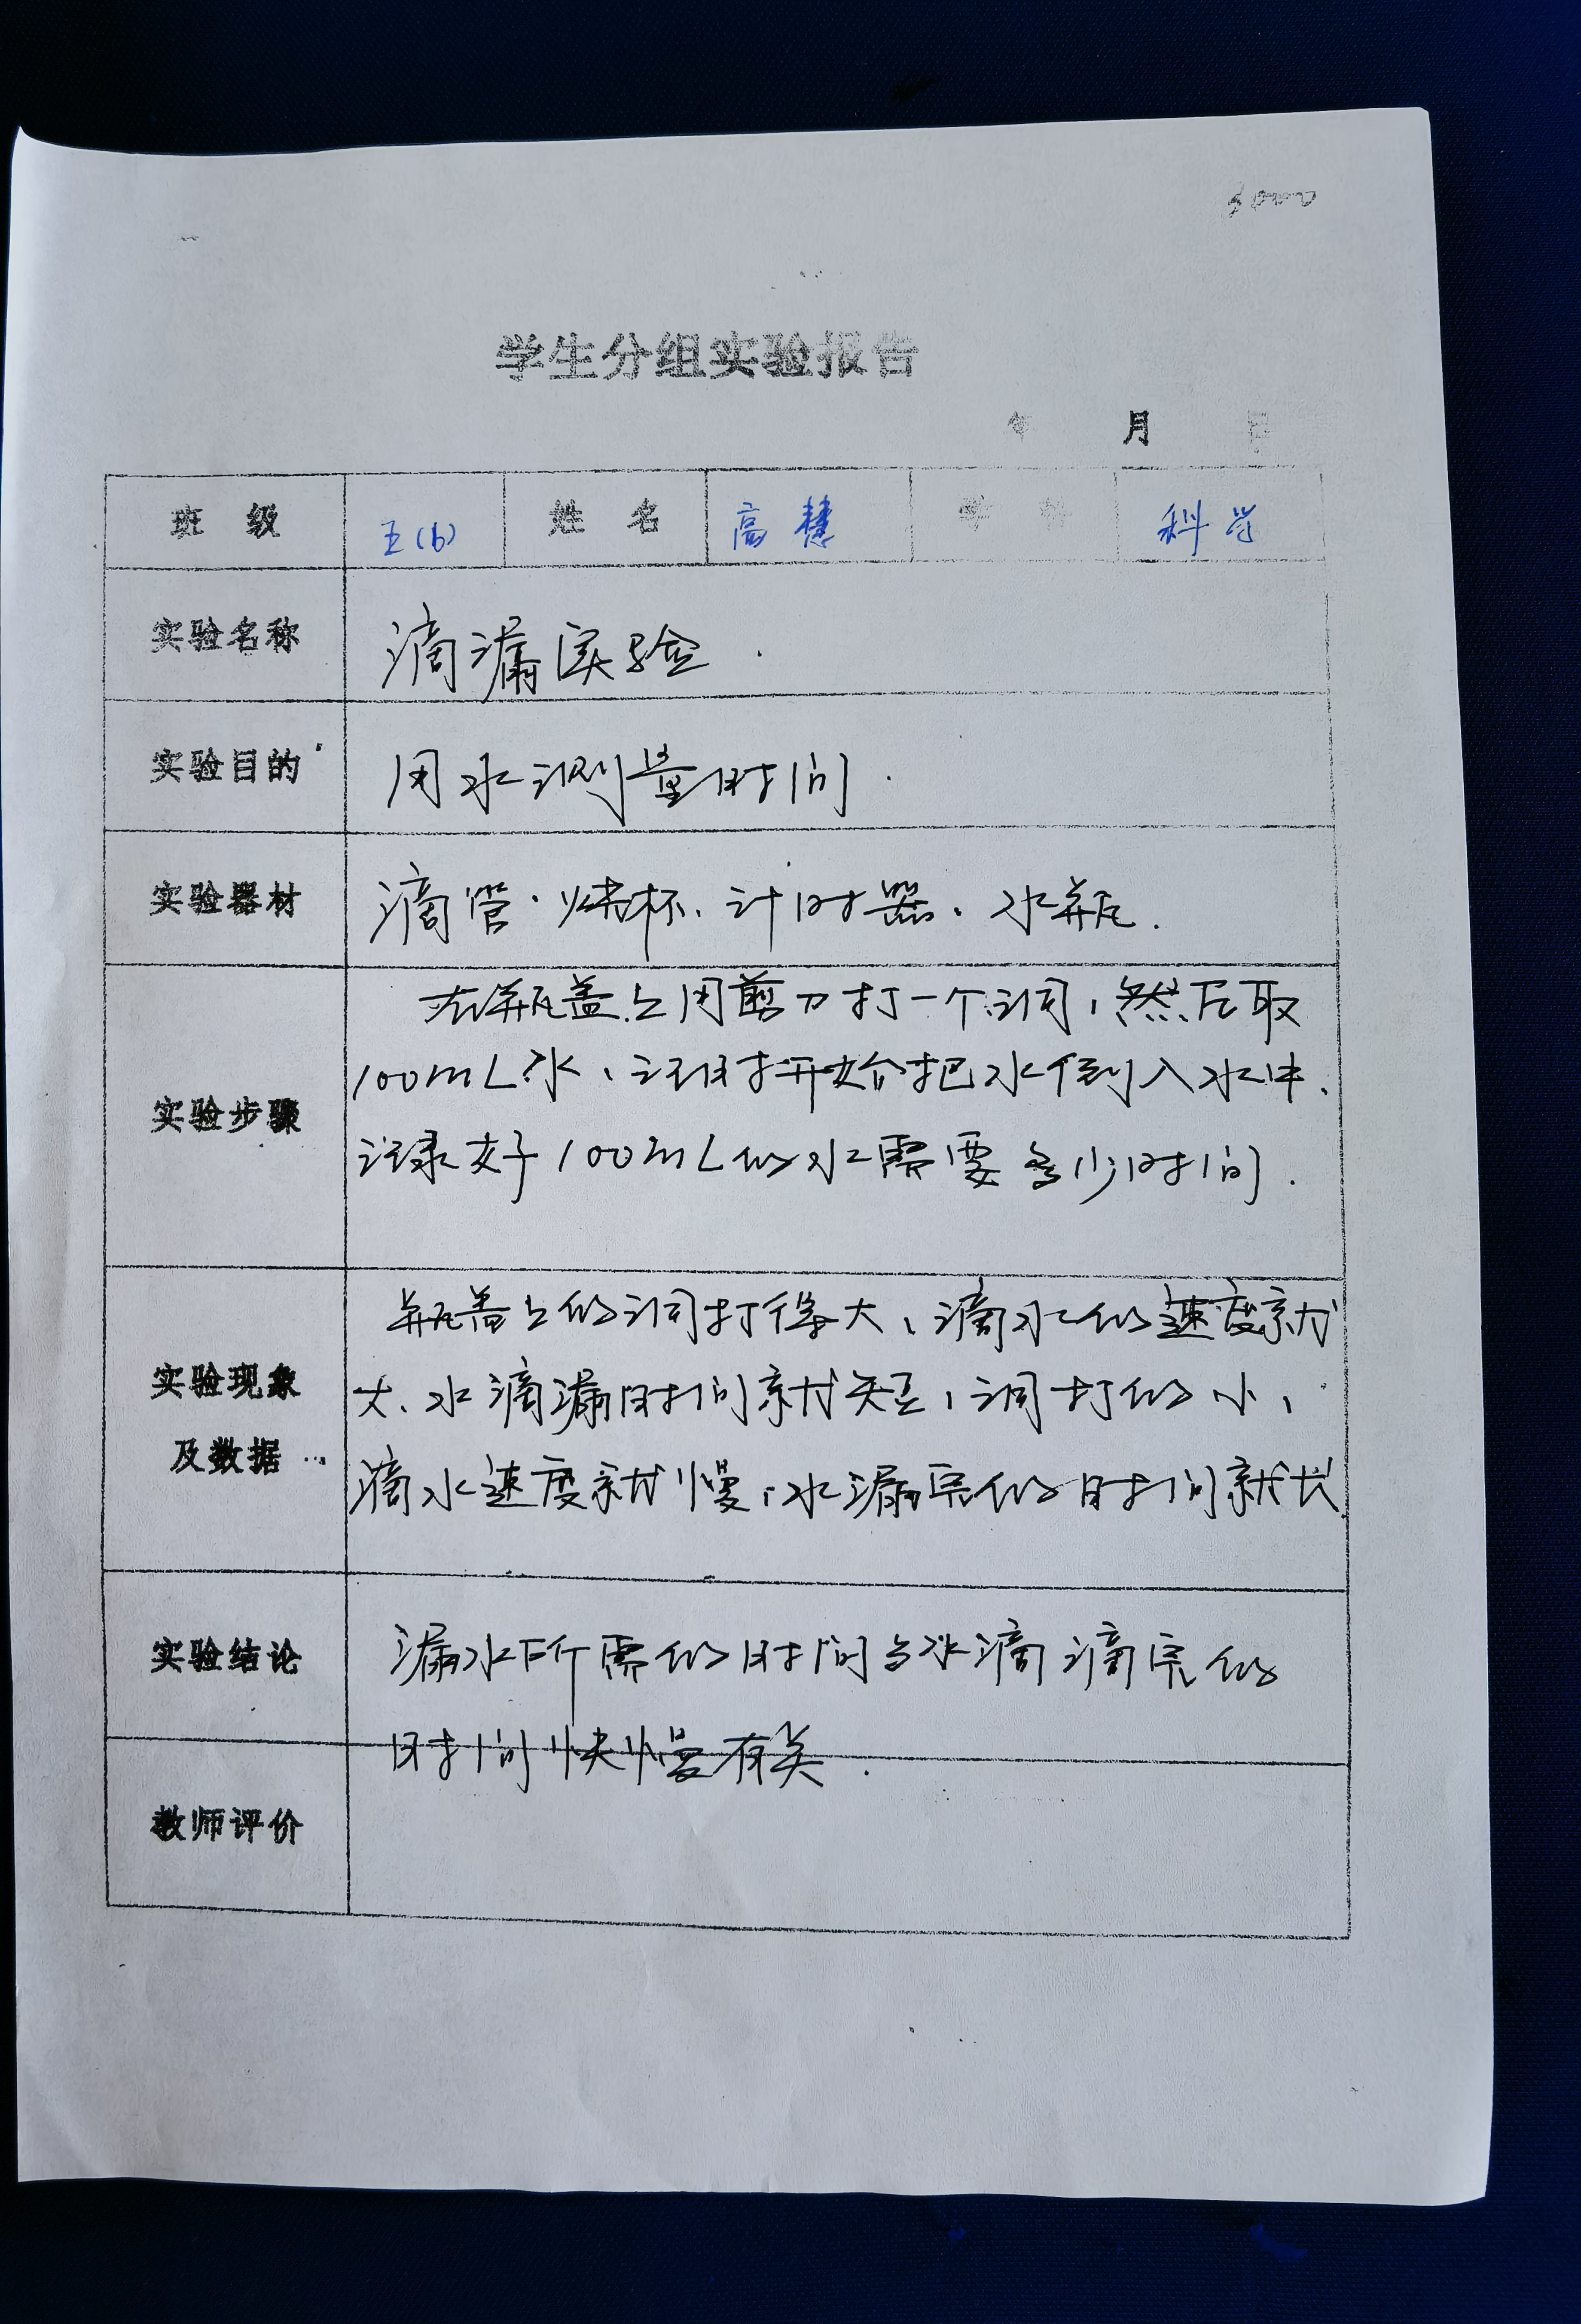 学生分组实验报告
年 月 日
班 级 五(6) 姓 名 高慧 学 科 科学
实验名称 滴漏实验.
实验目的 用水测量时间.
实验器材 滴管、烧杯、计时器、水瓶.
实验步骤
在瓶盖上用剪刀打一个洞,然后取
100mL水、计时开始把水倒入水中.
记录好100mL的水需要多少时间.
实验现象
及数据
瓶盖上的洞打得大、滴水的速度就
大、水滴漏时间就短,洞打的小,
滴水速度就慢,水漏完的时间就长.
实验结论
漏水所需的时间与水滴滴完的
时间快慢有关.
教师评价